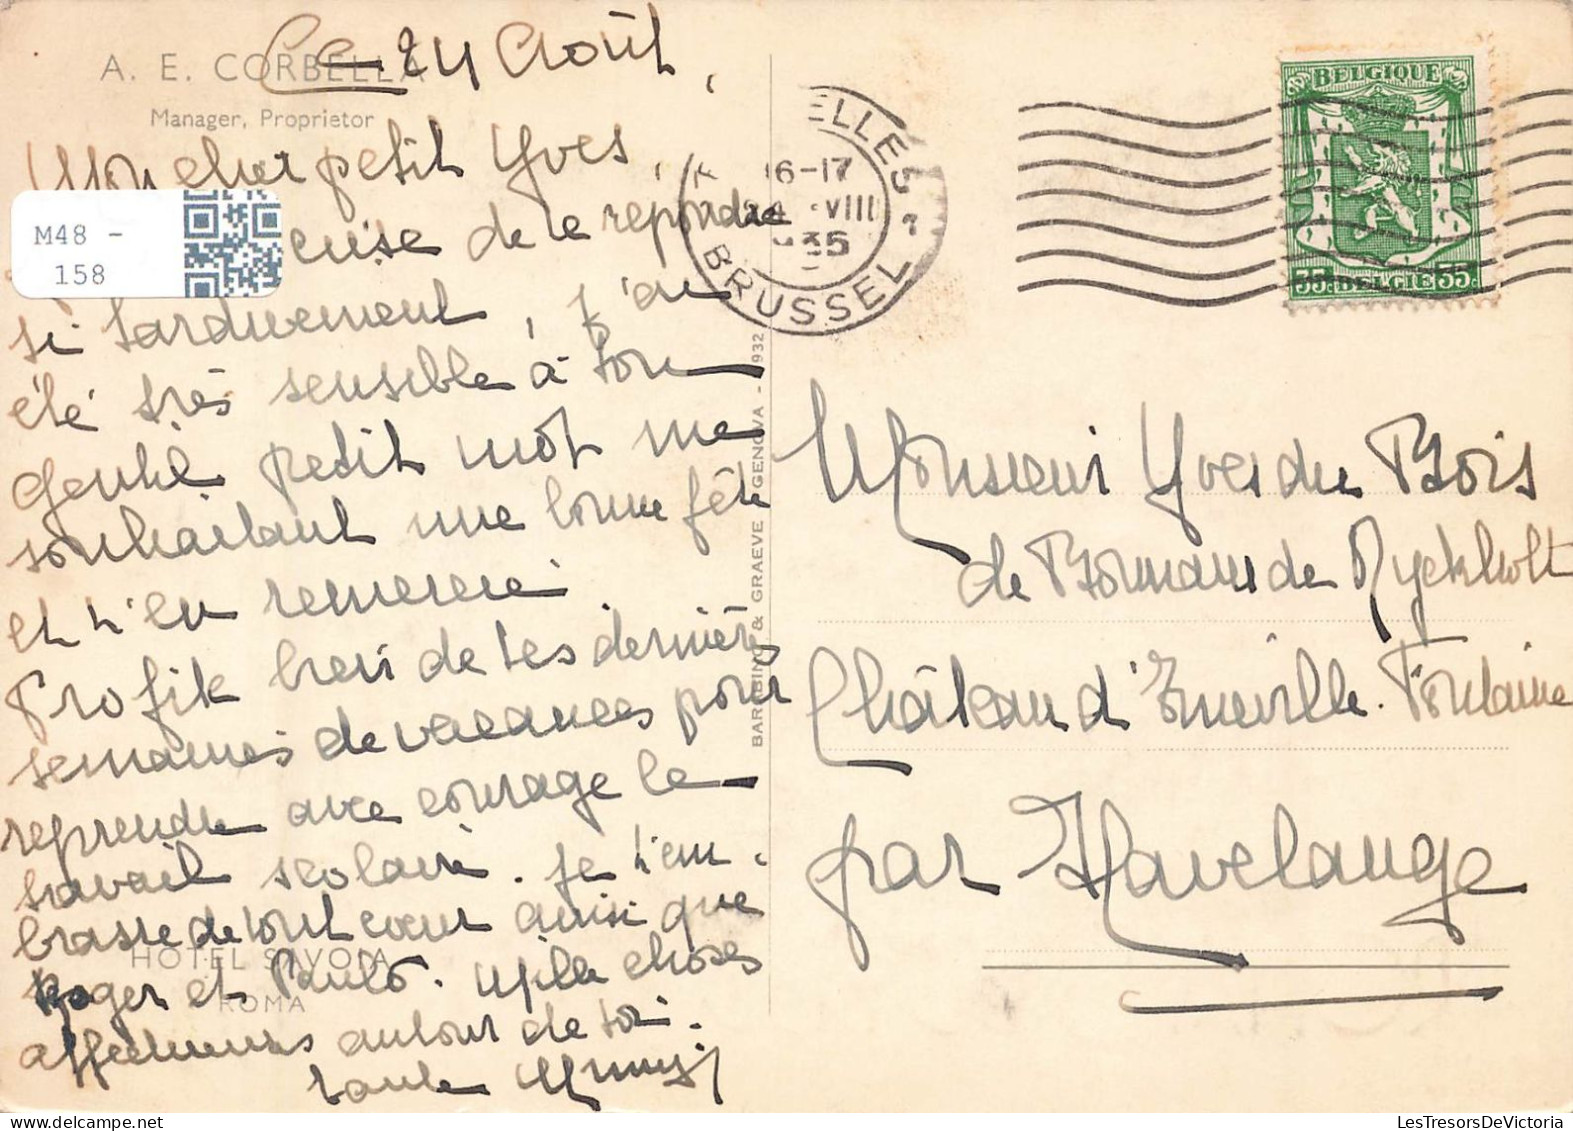 A. E. CORBELLA
Manager, Proprietor
Ce 24 Août,
Mon cher petit Yves,
de te répondre
si tardivement, j'ai
été très sensible à ton
gentil petit mot me
souhaitant une bonne fête
et t'en remercie
Profite bien de tes dernières
semaines de vacances pour
reprendre avec courage le
travail scolaire. Je t'em-
brasse de tout cœur ainsi que
Roger et Paulo. Mille choses
affectueuses autour de toi.
tante
HOTEL SAVOIA
ROMA
M48 -
158
BARABINO & GRAEVE GENOVA - 1932
ELLES
16-17
24 VIII
1935
BRUSSEL
BELGIQUE
35c BELGIE 35c
Monsieur Yves du Bois
de Bormans de Ryckholt
Château d'Emeville. Fontaine
par Havelange
LesTresorsDeVictoria.com